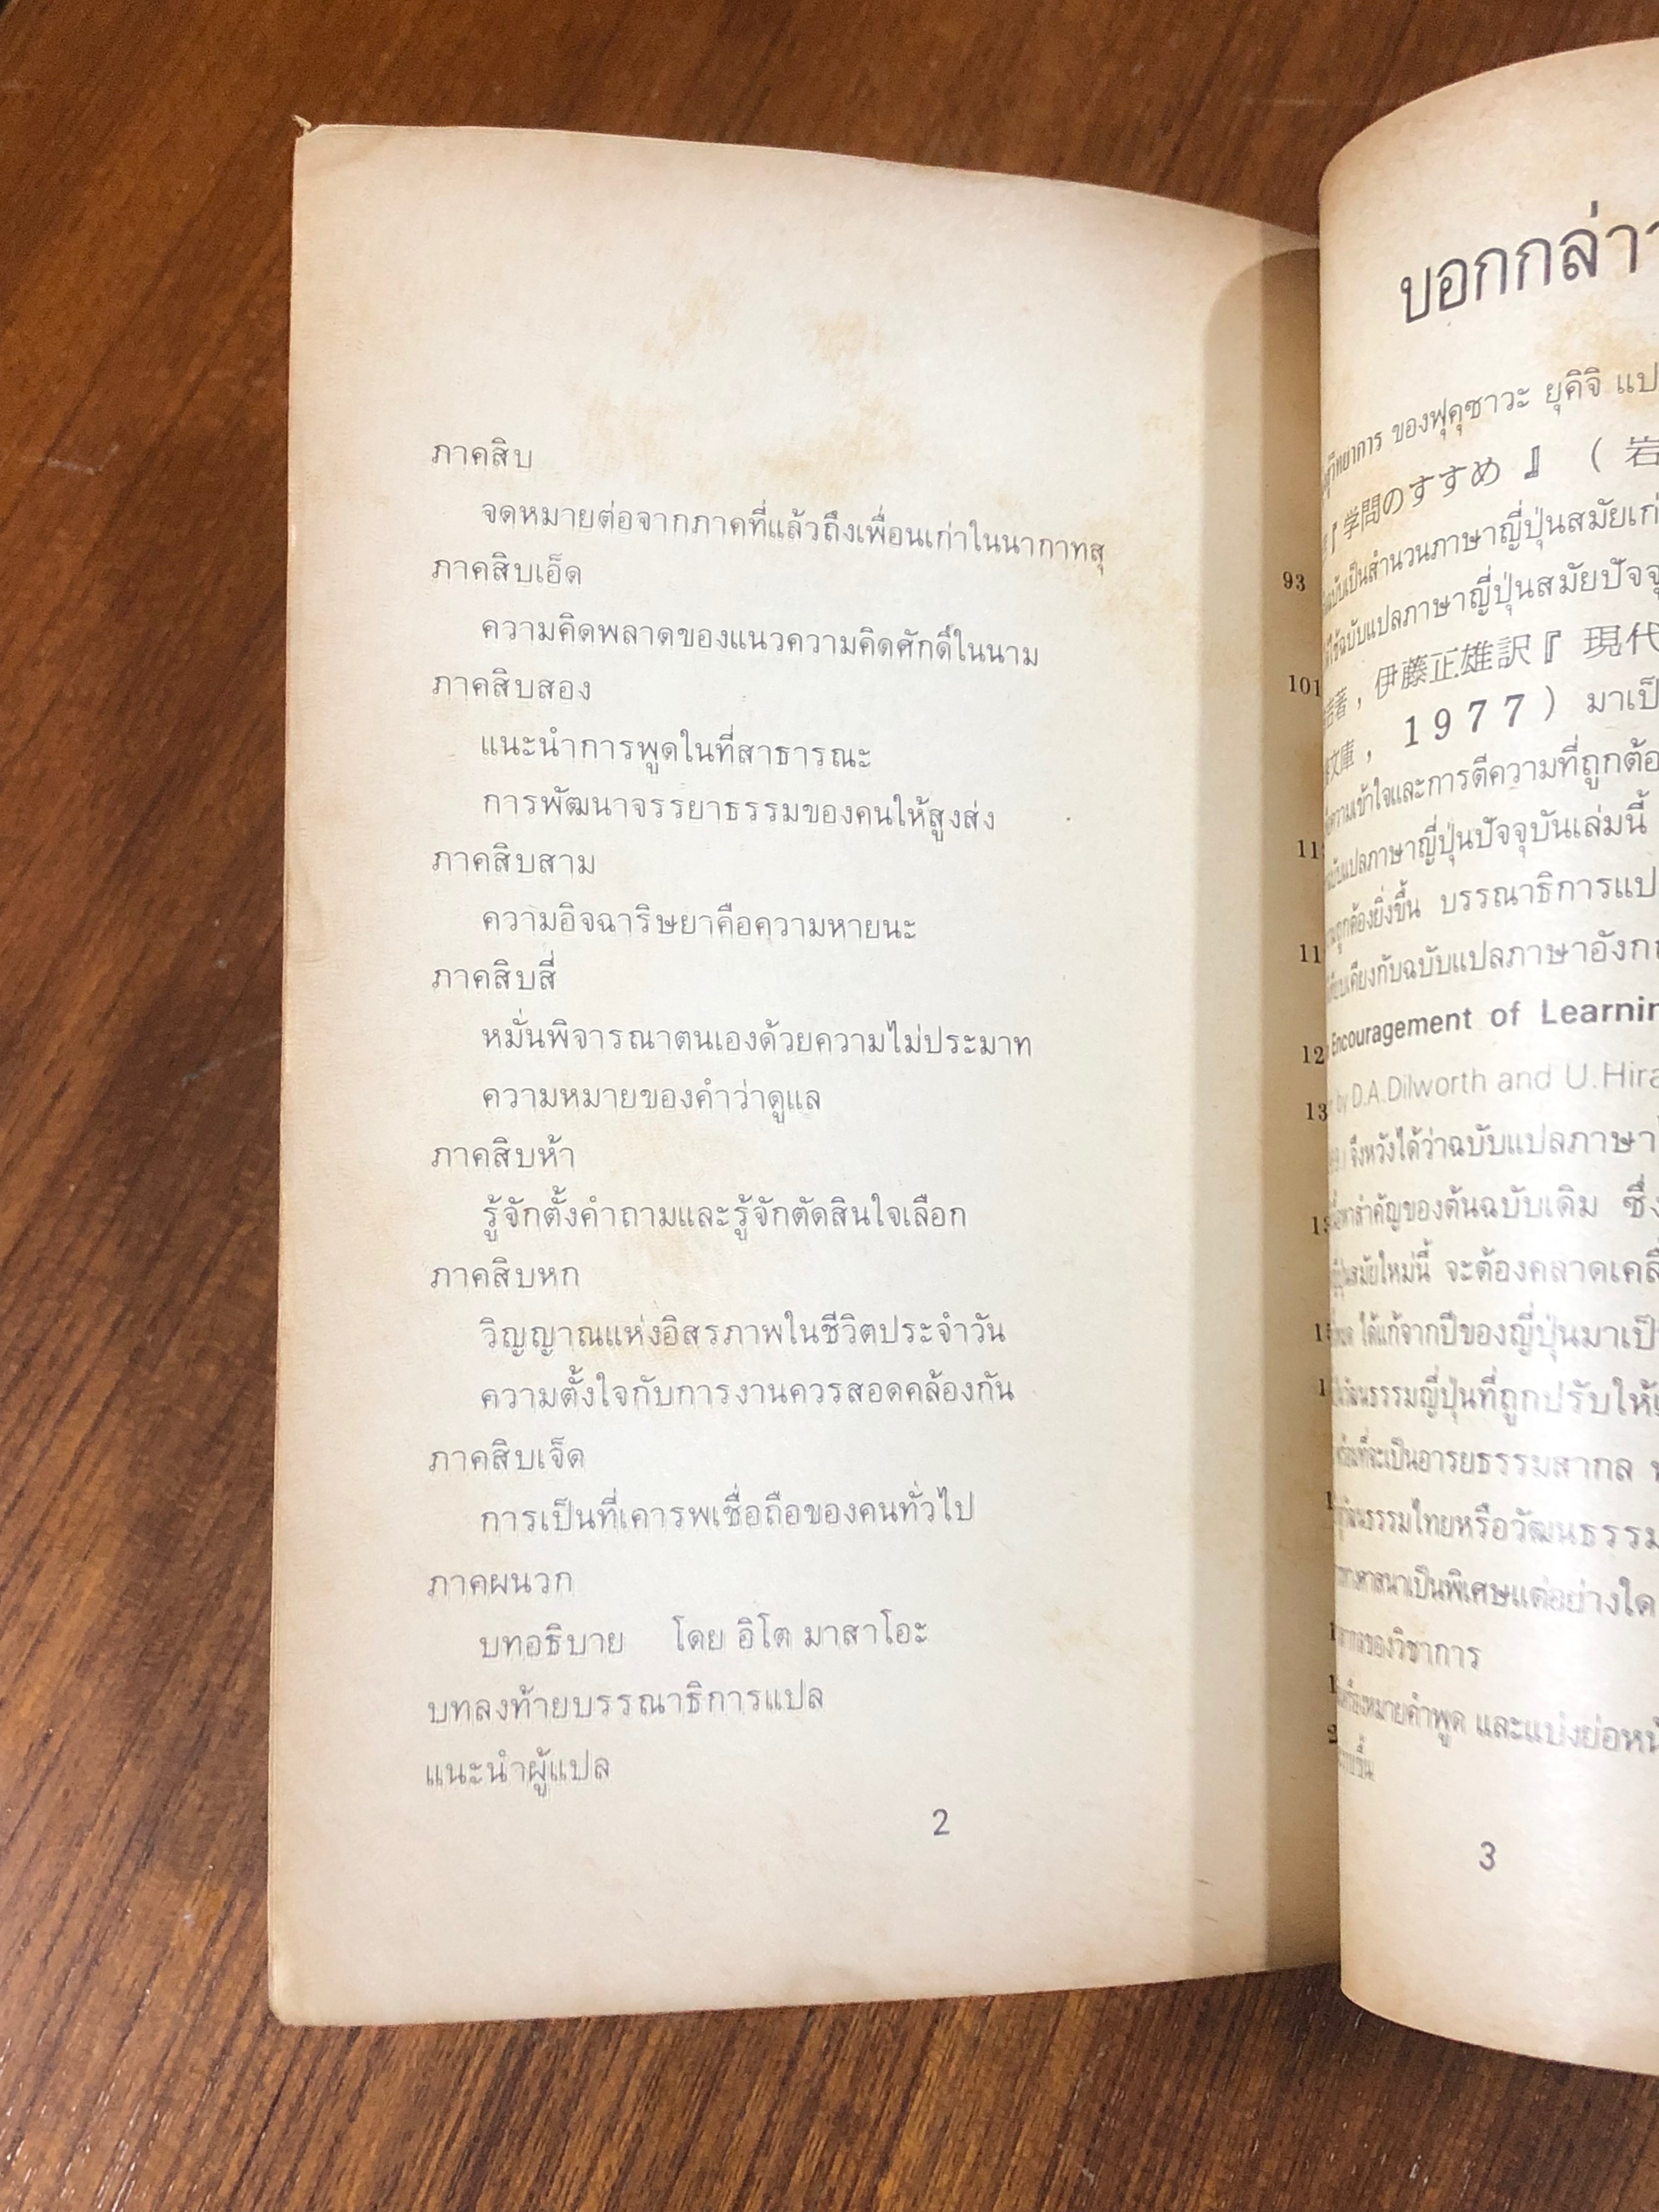 ภาคสิบ
จดหมายต่อจากภาคที่แล้วถึงเพื่อนเก่าในนากาทสุ 93
ภาคสิบเอ็ด
ความคิดพลาดของแนวความคิดศักดิ์ในนาม 101
ภาคสิบสอง
แนะนำการพูดในที่สาธารณะ
การพัฒนาจรรยาธรรมของคนให้สูงส่ง
ภาคสิบสาม
ความอิจฉาริษยาคือความหายนะ
ภาคสิบสี่
หมั่นพิจารณาตนเองด้วยความไม่ประมาท
ความหมายของคำว่าดูแล
ภาคสิบห้า
รู้จักตั้งคำถามและรู้จักตัดสินใจเลือก
ภาคสิบหก
วิญญาณแห่งอิสรภาพในชีวิตประจำวัน
ความตั้งใจกับการงานควรสอดคล้องกัน
ภาคสิบเจ็ด
การเป็นที่เคารพเชื่อถือของคนทั่วไป
ภาคผนวก
บทอธิบาย โดย อิโต มาสาโอะ
บทลงท้ายบรรณาธิการแปล
แนะนำผู้แปล
2
บอกกล่าว
ของฟุคุซาวะ ยุคิจิ
『学問のすすめ』 ( 岩
เป็นสำนวนภาษาญี่ปุ่นสมัยเก่
ใช้ฉบับแปลภาษาญี่ปุ่นสมัยปัจจุ
伊藤正雄訳『 現代
1977 ) มาเป็
ความเข้าใจและการตีความที่ถูกต้อ
แปลภาษาญี่ปุ่นปัจจุบันเล่มนี้
ถูกต้องยิ่งขึ้น บรรณาธิการแป
เคียงกับฉบับแปลภาษาอังก
Encouragement of Learnin
by D.A.Dilworth and U.Hira
จึงหวังได้ว่าฉบับแปลภาษา
สำคัญของต้นฉบับเดิม ซึ่ง
สมัยใหม่นี้ จะต้องคลาดเคลื่
ได้แก้จากปีของญี่ปุ่นมาเป็
วัฒนธรรมญี่ปุ่นที่ถูกปรับให้
ที่จะเป็นอารยธรรมสากล
วัฒนธรรมไทยหรือวัฒนธรรม
ทางศาสนาเป็นพิเศษแต่อย่างใด
ของวิชาการ
เครื่องหมายคำพูด และแบ่งย่อหน้
3